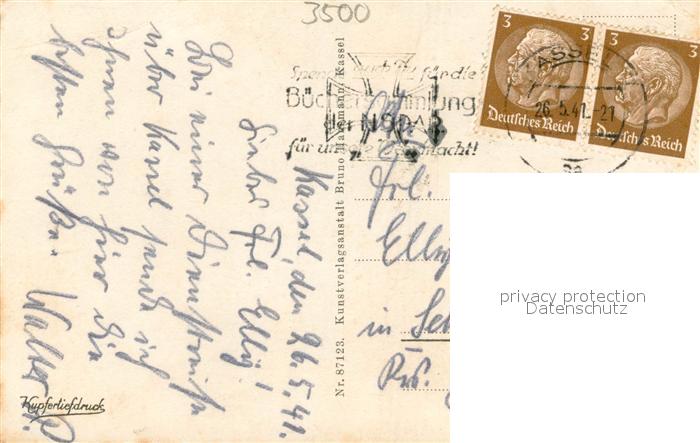 3500
3 3 3 3
Deutsches Reich Deutsches Reich
KASSEL
26.5.41.-21
Spendet auch Ihr für die
Büchersammlung
der NSDAP
für unsere Wehrmacht!
Kassel, den 26.5.41.
Liebes Frl. Ellig!
Bei einer Dienstreise
über Kassel sende ich
Ihnen von hier die
besten Grüße. Walter
Frl.
Ellig
in
Krs.
Nr. 87123. Kunstverlagsanstalt Bruno Hansmann, Kassel
Kupfertiefdruck
privacy protection
Datenschutz